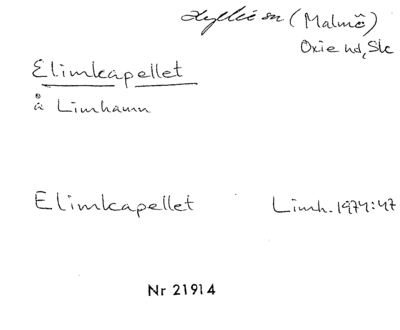 Hyllie sn (Malmö)
Oxie hd, Sk
Elimkapellet
å Limhamn
Elimkapellet Limh. 1974:47
Nr 21914